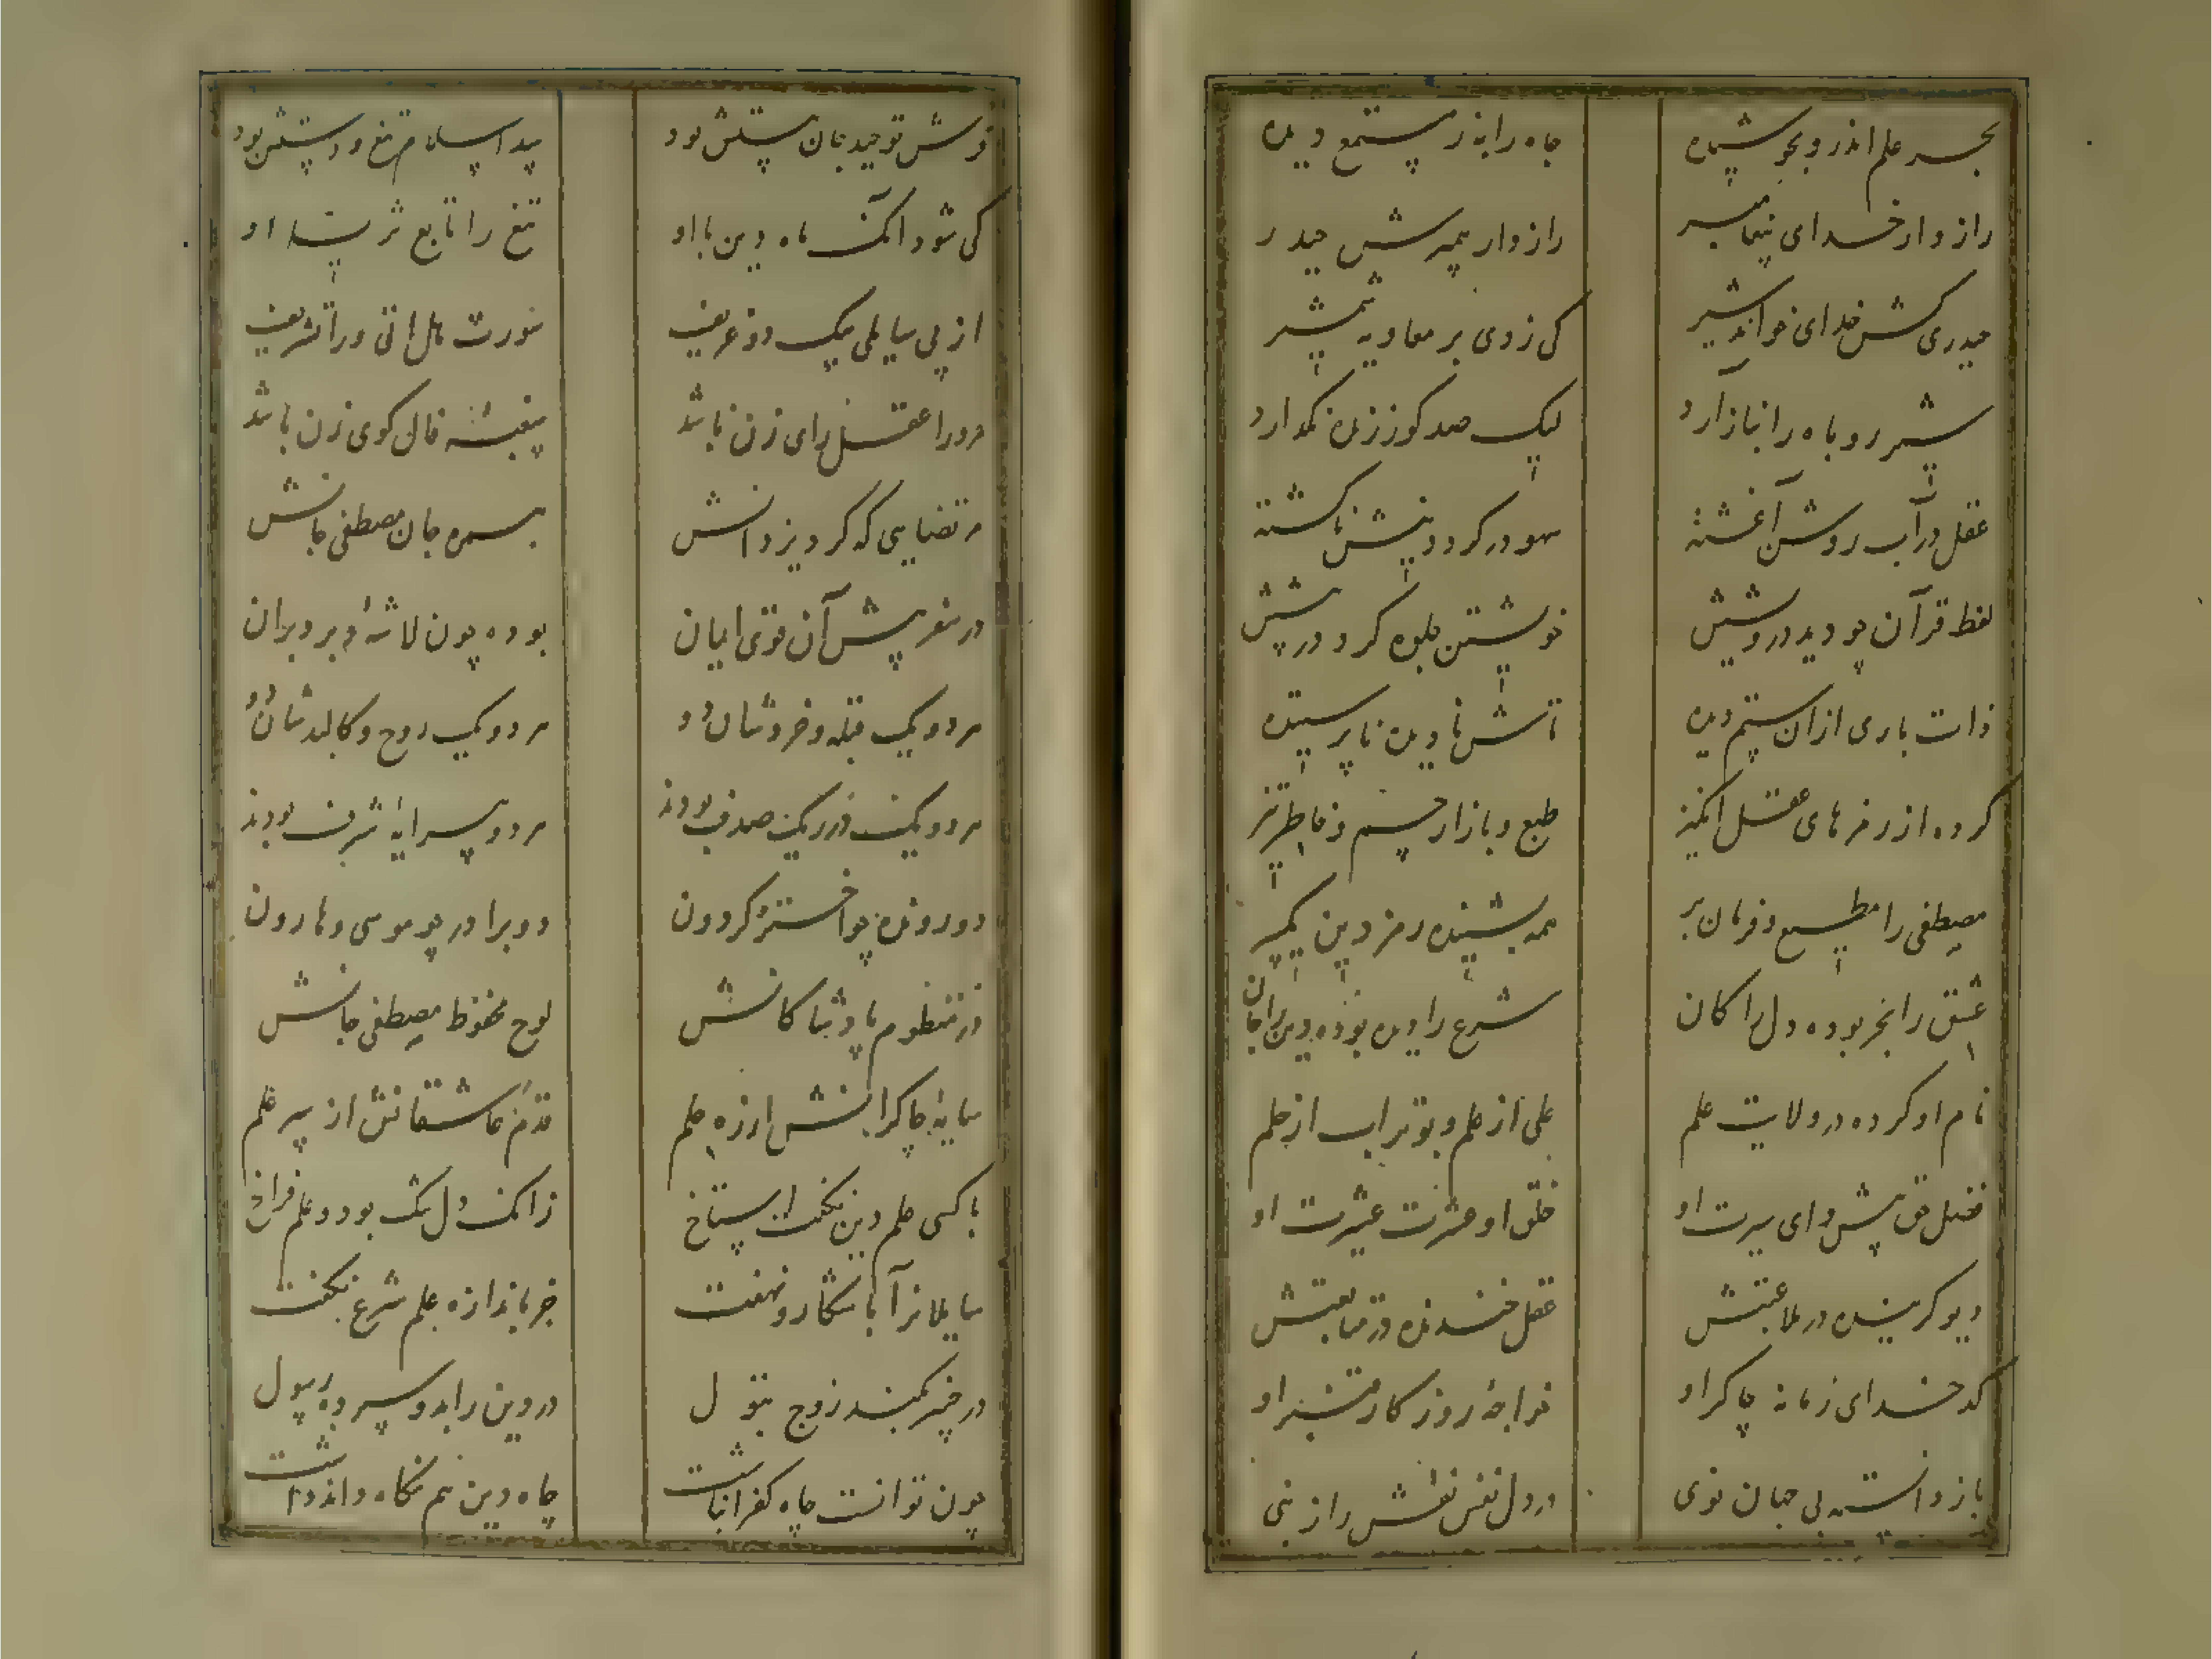 بحر علم اندرو بجوشیده چاه را به ز مستمع دیده
راز دار خدای پیغامبر راز دار پیمبرش حیدر
حیدری کش خدای خواند شیر کی زدی بر معاویه شمشیر
شیر روباه را نیازارد لیک صد گور زنده نگذارد
عقل در آب روشن آغشته سهو در گرد دینش ناگشته
لفظ قرآن چو دید درویشیش خویشتن جلوه کرد در پیشش
ذات باری ازان ستم دیده تاش نادیده ناپرستیده
کرده از رمزهای عقل انگیز طبع و بازار جسم و خاطر تیز
مصطفی را مطیع و فرمان بر همه بشنیده رمز دین یکسر
عشق را بحر بوده دل را کان شرع را دیده بوده دین را جان
نام او کرده در ولایت علم علی از علم و بوتراب از حلم
فضل حق پیشوای سیرت او خلق او عشرت عشیرت او
دیو گرینده در ملاعبتش عقل خندنده در متابعتش
کدخدای زمانه چاکر او خواجهٔ روزگار قنبر او
باز دانسته بی جهان نوی در دل نفس نفسش راز نبی
فرش توحید جان مستش بود پید اسلام تیغ و دستش بود
کی شود آنک ماه دین با او تیغ را تابع ترسا او
از پی سایلی بیک دو رغیف سورت هل اتی ورا تشریف
مرد را عقل رای زن باشد سفبه فال گوی زن باشد
مرتضایی که کرد یزدانش همره جان مصطفی جانش
در سفر پیش آن قوی ایمان بوده چون لاشهٔ دبر دبران
هر دو یک قبله و خردشان دو هر دو یک روح و کالبدشان دو
هر دو یک در ز یک صدف بودند هر دو پیرایهٔ شرف بودند
دو رونده چو اختر گردون دو برادر چو موسی و هارون
در منظوم پادشا کانش لوح محفوظ مصطفی جانش
سایهٔ چاکرانش از ره حلم قدم عاشقانش از سر علم
با کسی علم دین نگفت استاخ زانک دل تنگ بود و علم فراخ
سایلانرا باشکار و نهفت جز باندازه علم شرع نگفت
در خیبر بکند زوج بتول در دین را بدو سپرده رسول
چون توانست چاه کفر انباشت چاه دین هم نگاه داند داشت